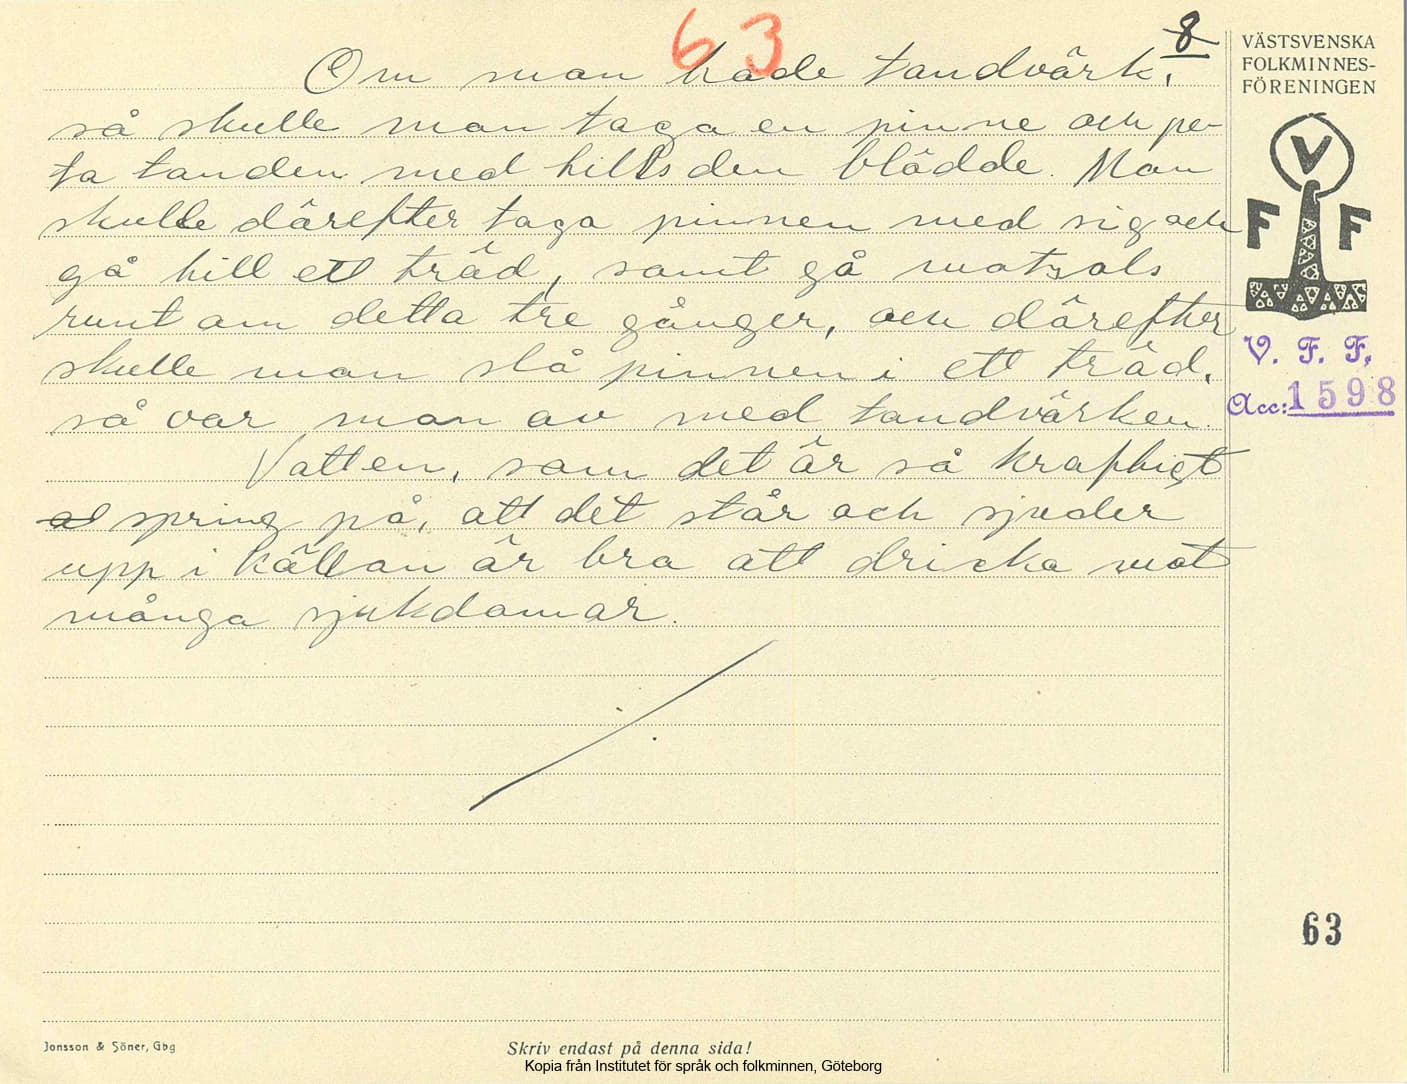 63
8
VÄSTSVENSKA
FOLKMINNES-
FÖRENINGEN
Om man hade tandvärk,
så skulle man taga en pinne och pe-
ta tanden med tills den blödde. Man
skulle därefter taga pinnen med sig och
gå till ett träd, samt gå motsols
runt om detta tre gånger, och därefter
skulle man slå pinnen i ett träd,
så var man av med tandvärken.
Vatten, som det är så kraftigt
spring på, att det står och sjuder
upp i källan är bra att dricka mot
många sjukdomar.
V
F F
V. F. F.
Acc: 1598
63
Jonsson & Söner, Gbg
Skriv endast på denna sida!
Kopia från Institutet för språk och folkminnen, Göteborg